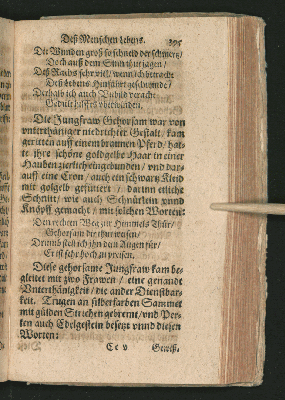 Deß Menschen Lebens. 395
Die Wunden groß so schneid der schmertz/
Doch auß dem Sinn thut jagen/
Deß Neids sehr viel/ wenn ich betracht
Deß Lebens Hinfahrt geschwinde/
Derhalb ich auch Unbild veracht
Gedult hilfft überwinden.
Die Jungfraw Gehorsam war von
vnterthäniger niedrichter Gestalt/ kam
geritten auff einem braunen Pferd/ hat-
te ihre schöne goldgelbe Haar in einer
Hauben zierlich eingebunden/ vnd dar-
auff eine Cron/ auch ein schwartz Kleid
mit goldgelb gefüttert/ darinn etliche
Schnitt/ wie auch Schnürlein vnnd
Knöpff gemacht/ mit solchen Worten:
Den rechten Weg zur Himmels Thür/
Gehorsam die thut weisen/
Drumb stell ich ihn den Augen für/
Erst sehr hoch zu preisen.
Diese gehorsame Jungfraw kam be-
gleitet mit zwo Frawen/ eine genandt
Vnterthänigkeit/ die ander Dienstbar-
keit. Trugen an silberfarben Sammet
mit gülden Striechen gebremt/ vnd Per-
len auch Edelgestein besetzt vnnd diesen
Worten:
Cc v Gewiß.